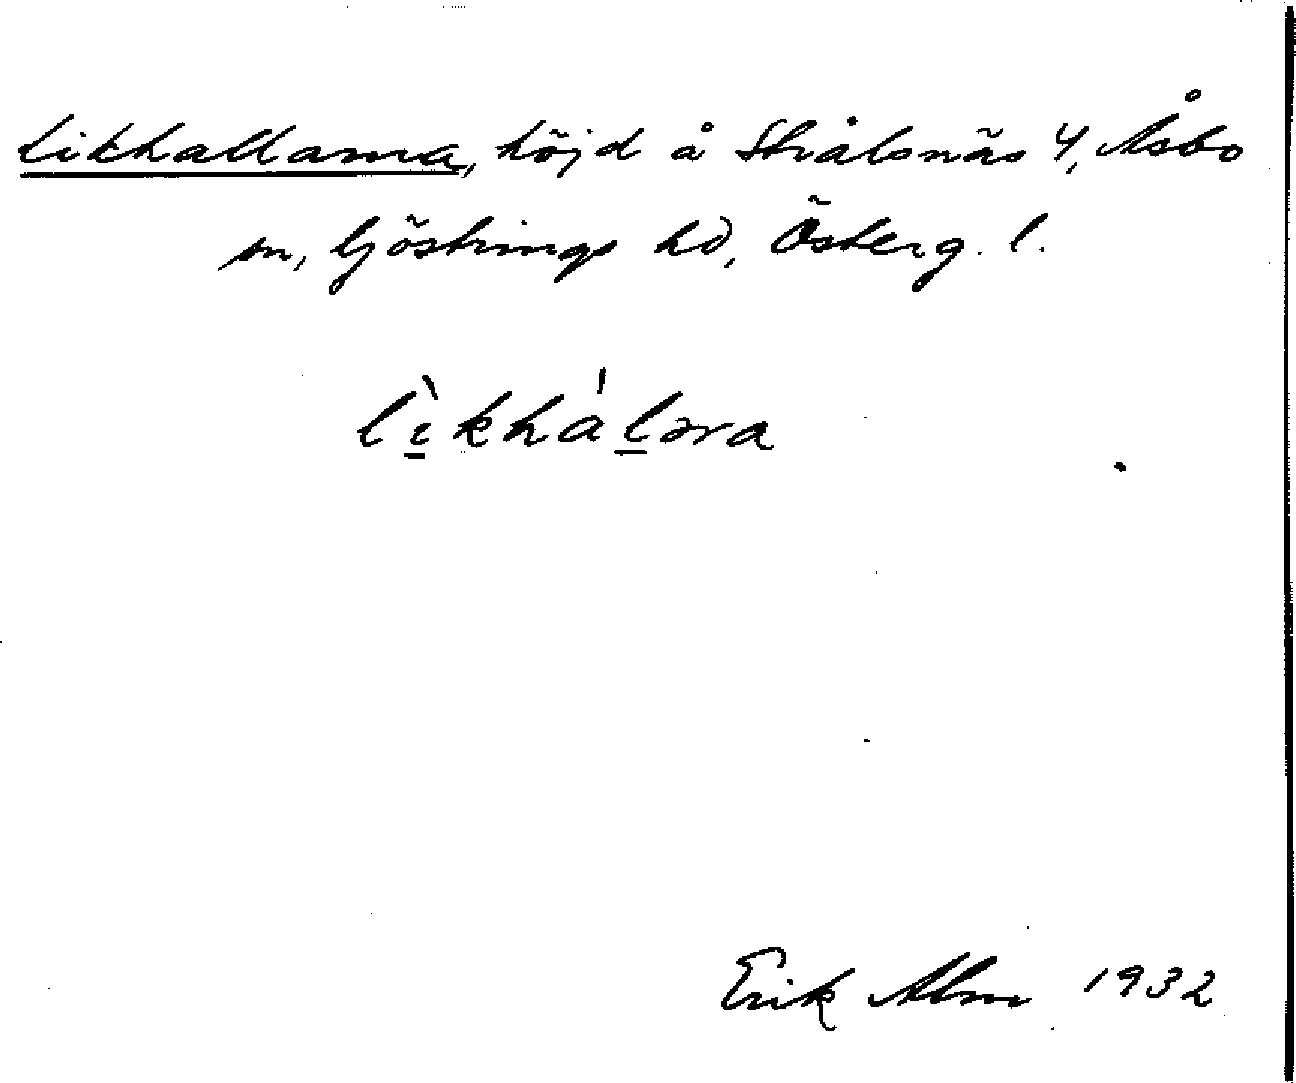 Likhallarna, höjd å Strålsnäs 4, Åsbo
sn, Göstrings hd, Österg. l.
lìkhálǝra
Erik Alm 1932